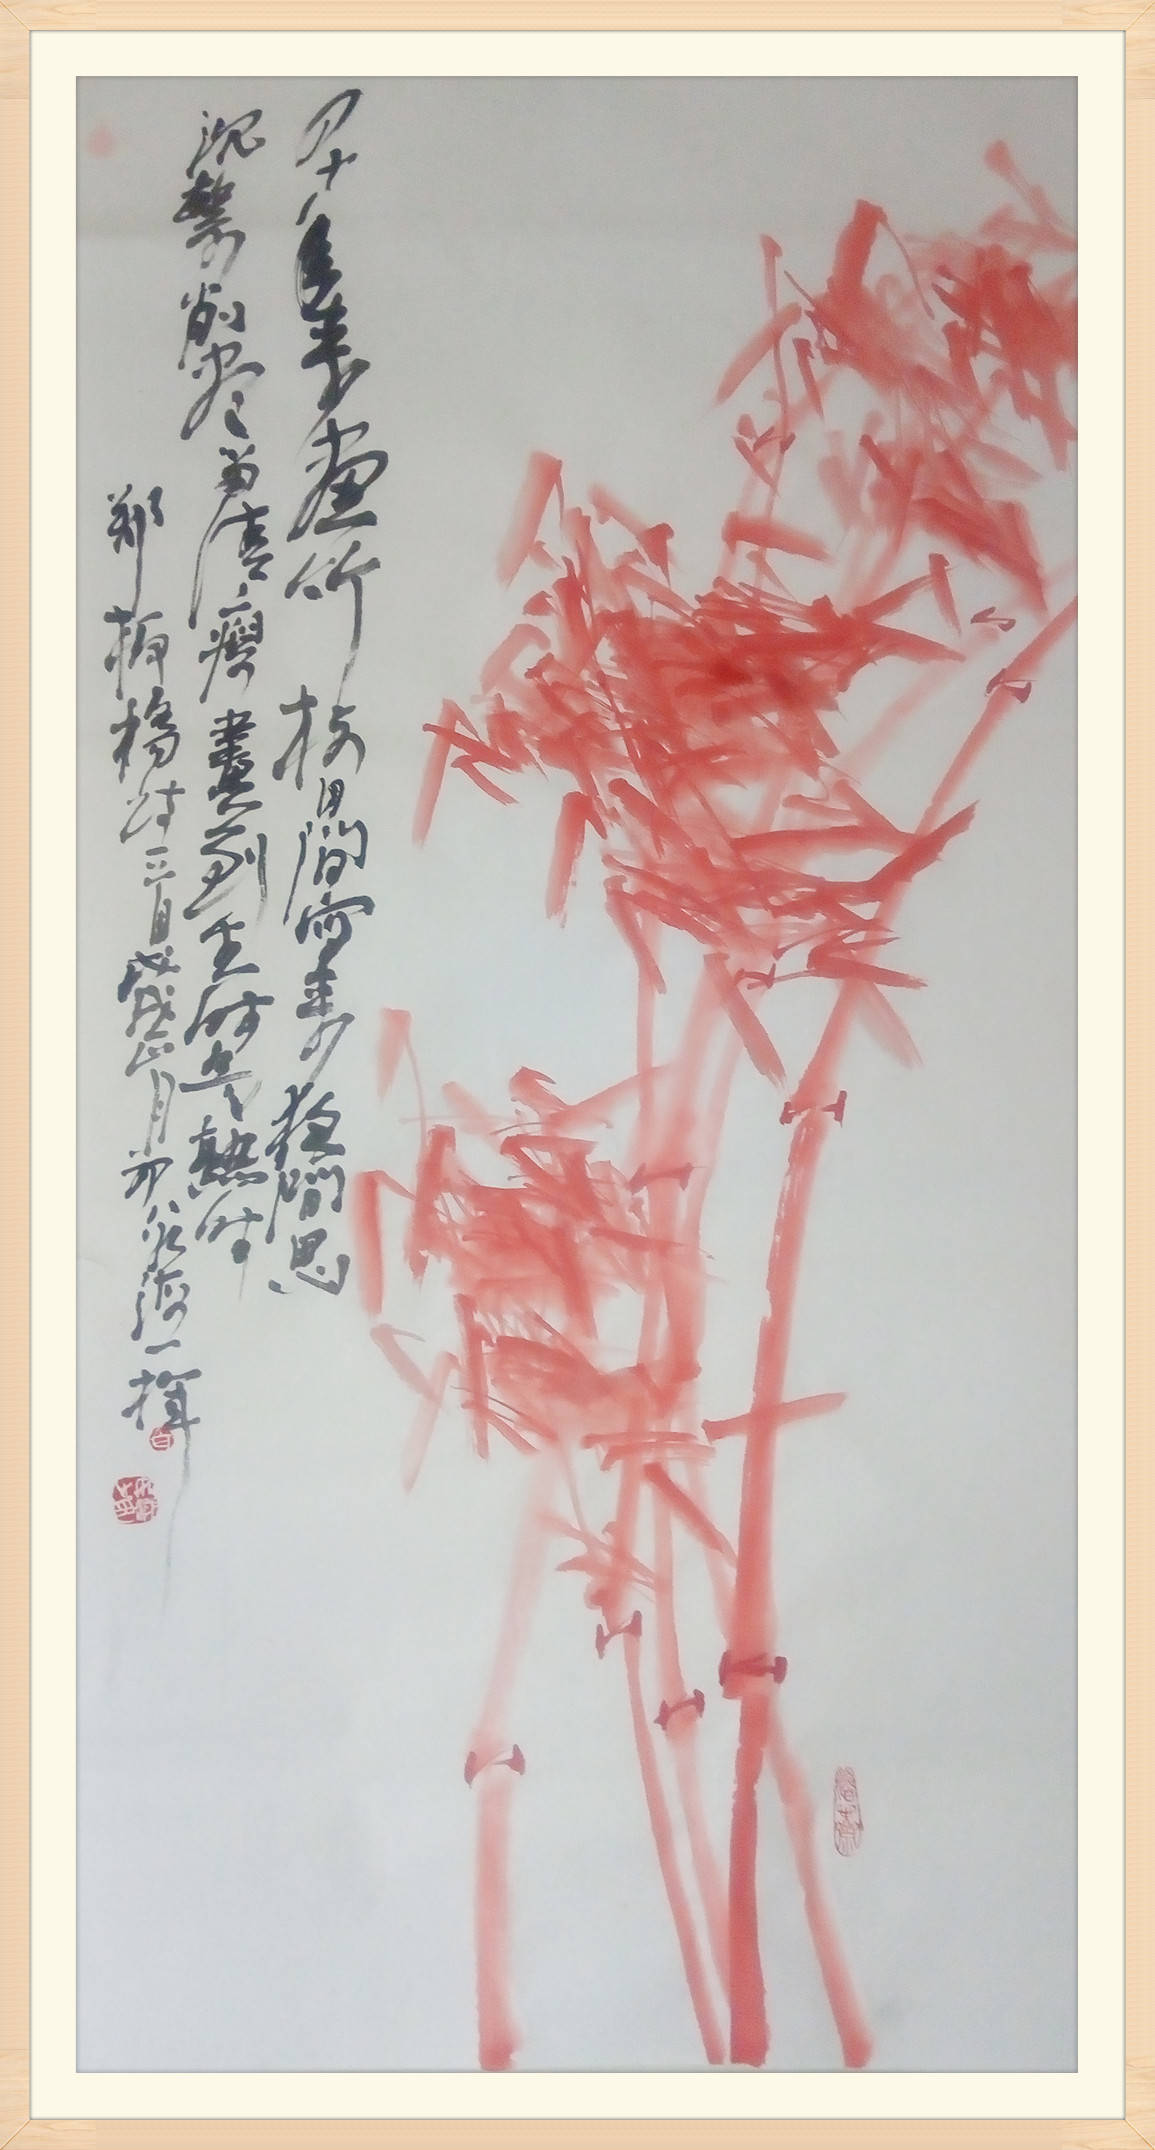 四十年来画竹枝日间挥写夜间思
冗繁削尽留清瘦画到生时是熟时
郑板桥诗一首戊戌正月初八永海一挥